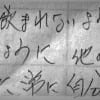 飲まれないよ
ように 他
に、常に自分